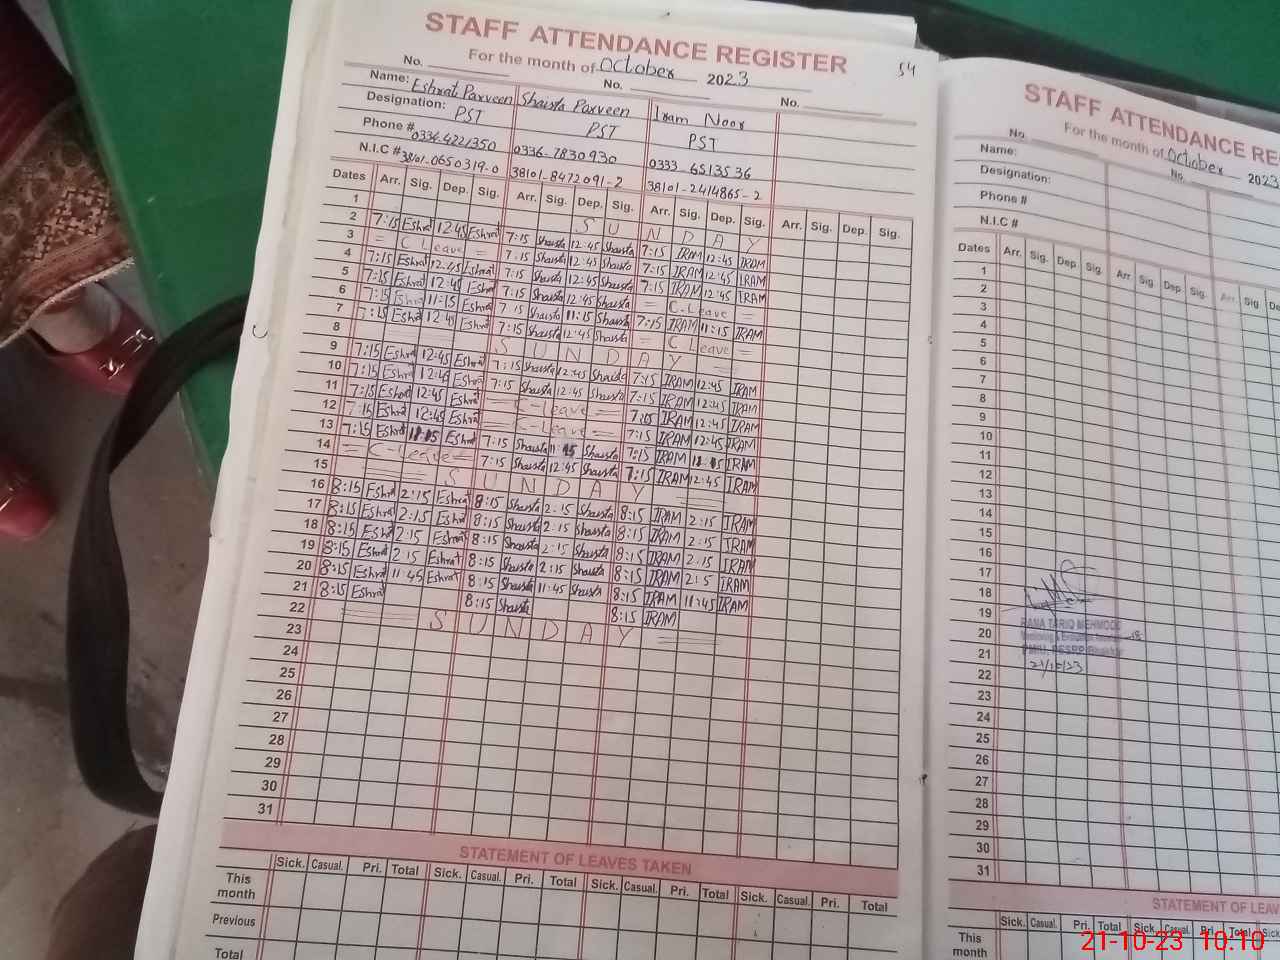 STAFF ATTENDANCE REGISTER
54
For the month of October 2023
No. No. No.
Name: Eshrat Parveen Shaista Parveen Iram Noor
Designation: PST PST PST
Phone # 0336-7830930 0333-6513536
N.I.C # 38101-0650319-0 38101-8472091-2 38101-2414865-2
Dates Arr. Sig. Dep. Sig. Arr. Sig. Dep. Sig. Arr. Sig. Dep. Sig. Arr. Sig. Dep. Sig.
1 SUNDAY
2 7:15 Eshrat 12:45 Eshrat 7:15 Shaista 12:45 Shaista 7:15 IRAM 12:45 IRAM
3 = C Leave = 7:15 Shaista 12:45 Shaista 7:15 IRAM 12:45 IRAM
4 7:15 Eshrat 12:45 Eshrat 7:15 Shaista 12:45 Shaista 7:15 IRAM 12:45 IRAM
5 7:15 Eshrat 12:45 Eshrat 7:15 Shaista 12:45 Shaista = C.Leave =
6 7:15 Eshrat 11:15 Eshrat 7:15 Shaista 11:15 Shaista 7:15 IRAM 11:15 IRAM
7 7:15 Eshrat 12:45 Eshrat 7:15 Shaista 12:45 Shaista = C Leave =
8 SUNDAY
9 7:15 Eshrat 12:45 Eshrat 7:15 Shaista 12:45 Shaista 7:15 IRAM 12:45 IRAM
10 7:15 Eshrat 12:45 Eshrat 7:15 Shaista 12:45 Shaista 7:15 IRAM 12:45 IRAM
11 7:15 Eshrat 12:45 Eshrat = C-Leave = 7:15 IRAM 12:45 IRAM
12 7:15 Eshrat 12:45 Eshrat = C-Leave = 7:15 IRAM 12:45 IRAM
13 7:15 Eshrat 11:15 Eshrat 7:15 Shaista 11:15 Shaista 7:15 IRAM 11:15 IRAM
14 = C-Leave = 7:15 Shaista 12:45 Shaista 7:15 IRAM 12:45 IRAM
15 SUNDAY
16 8:15 Eshrat 2:15 Eshrat 8:15 Shaista 2:15 Shaista 8:15 IRAM 2:15 IRAM
17 8:15 Eshrat 2:15 Eshrat 8:15 Shaista 2:15 Shaista 8:15 IRAM 2:15 IRAM
18 8:15 Eshrat 2:15 Eshrat 8:15 Shaista 2:15 Shaista 8:15 IRAM 2:15 IRAM
19 8:15 Eshrat 2:15 Eshrat 8:15 Shaista 2:15 Shaista 8:15 IRAM 2:15 IRAM
20 8:15 Eshrat 11:45 Eshrat 8:15 Shaista 11:45 Shaista 8:15 IRAM 11:45 IRAM
21 8:15 Eshrat 8:15 Shaista 8:15 IRAM
22 SUNDAY
23
24
25
26
27
28
29
30
31
STATEMENT OF LEAVES TAKEN
Sick. Casual. Pri. Total Sick. Casual. Pri. Total Sick. Casual. Pri. Total Sick. Casual. Pri. Total
This month
Previous
Total
STAFF ATTENDANCE RE
For the month of October 2023
No. No.
Name:
Designation:
Phone #
N.I.C #
Dates Arr. Sig. Dep. Sig. Arr. Sig. Dep. Sig. Arr. Sig. De
1
2
3
4
5
6
7
8
9
10
11
12
13
14
15
16
17
18
19
20
21
22
23
24
25
26
27
28
29
30
31
RANA TARIQ MEHMOOD
21/10/23
STATEMENT OF LEAV
Sick. Casual. Pri. Total Sick. Casual. Pri. Total Sick
This month
21-10-23 10:10